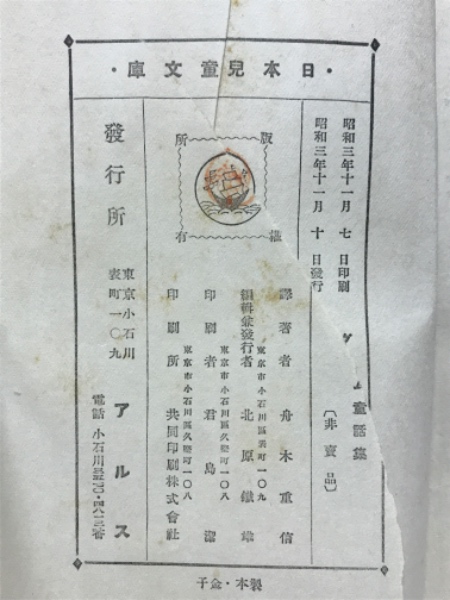 ・日本兒童文庫・
昭和三年十一月 七 日印刷
昭和三年十一月 十 日發行
童話集
〔非賣品〕
版權
所有
譯著者 舟木重信
東京市小石川區表町一〇九
編輯兼發行者 北原鐵雄
東京市小石川區久堅町一〇八
印刷者 君島潔
東京市小石川區久堅町一〇八
印刷所 共同印刷株式會社
發行所
東京小石川
表町一〇九
アルス
電話 小石川
製本・金子